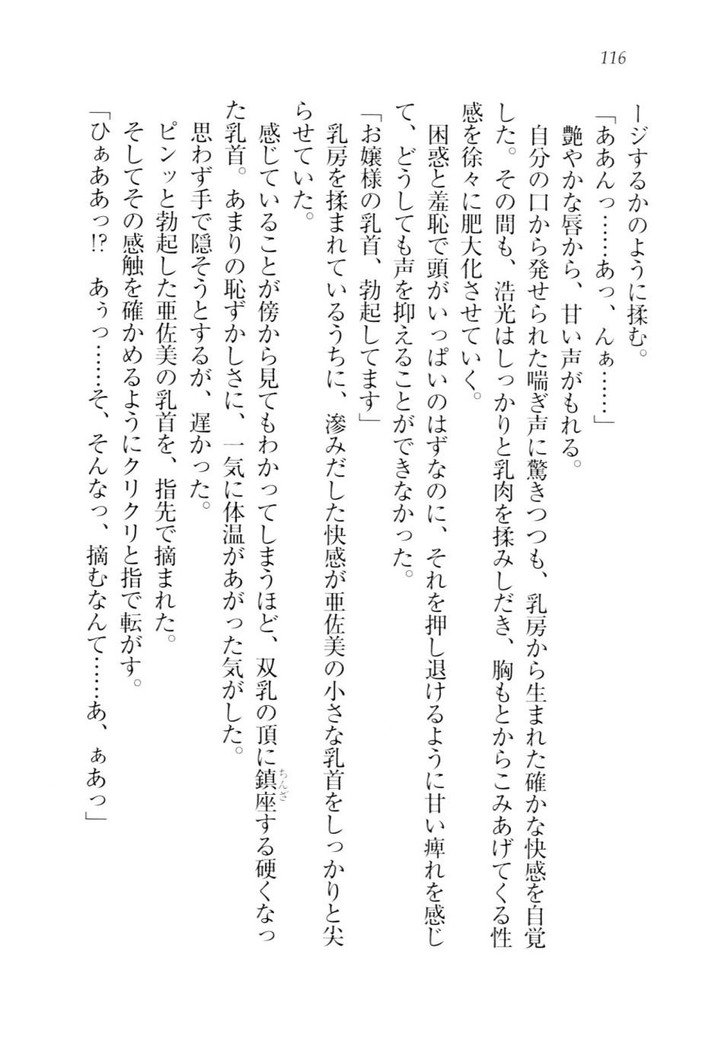 116
ージするかのように揉む。
「ああんっ……あっ、んぁ……」
艶やかな唇から、甘い声がもれる。
自分の口から発せられた喘ぎ声に驚きつつも、乳房から生まれた確かな快感を自覚
した。その間も、浩光はしっかりと乳肉を揉みしだき、胸もとからこみあげてくる性
感を徐々に肥大化させていく。
困惑と羞恥で頭がいっぱいのはずなのに、それを押し退けるように甘い痺れを感じ
て、どうしても声を抑えることができなかった。
「お嬢様の乳首、勃起してます」
乳房を揉まれているうちに、滲みだした快感が亜佐美の小さな乳首をしっかりと尖
らせていた。
感じていることが傍から見てもわかってしまうほど、双乳の頂に鎮座する硬くなっ
ちんざ
た乳首。あまりの恥ずかしさに、一気に体温があがった気がした。
思わず手で隠そうとするが、遅かった。
ピンッと勃起した亜佐美の乳首を、指先で摘まれた。
そしてその感触を確かめるようにクリクリと指で転がす。
「ひぁああっ!?　あぅっ……そ、そんなっ、摘むなんて……あ、ぁあっ」